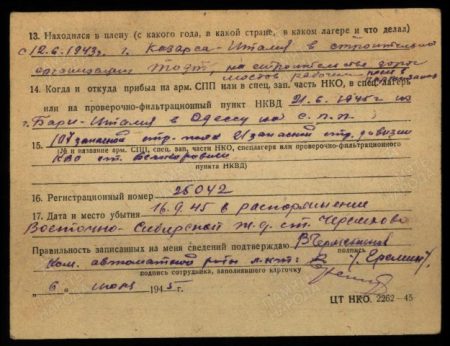 13. Находился в плену (с какого года, в какой стране, в каком лагере и что делал)
с 12.6.1943г. г. Казарса-Италия в строительно
организации Тодт, на строительстве дорог
мостов рабочим
14. Когда и откуда прибыл на арм. СПП или в спец. зап. часть НКО, в спецлагерь
или на проверочно-фильтрационный пункт НКВД 21.6.1945г из
г. Бари-Италия в Одессу на с.п.п.
15. 107 запасной стр. полк 21 запасной стр. дивизии
(№ и название арм. СПП, спец. зап. части НКО, спецлагеря или проверочно-фильтрационного
КВО ст.
пункта НКВД)
16. Регистрационный номер 25042
17. Дата и место убытия 16.9.45 в распоряжение
Восточно-Сибирской ж.д. ст. Черемхово
Правильность записанных на меня сведений подтверждаю
подпись
Ком. автоматной роты л-нт: /Еремин/
подпись сотрудника, заполнявшего карточку
„ 6 „ июля 1945 г.
ЦТ НКО. 2262—45